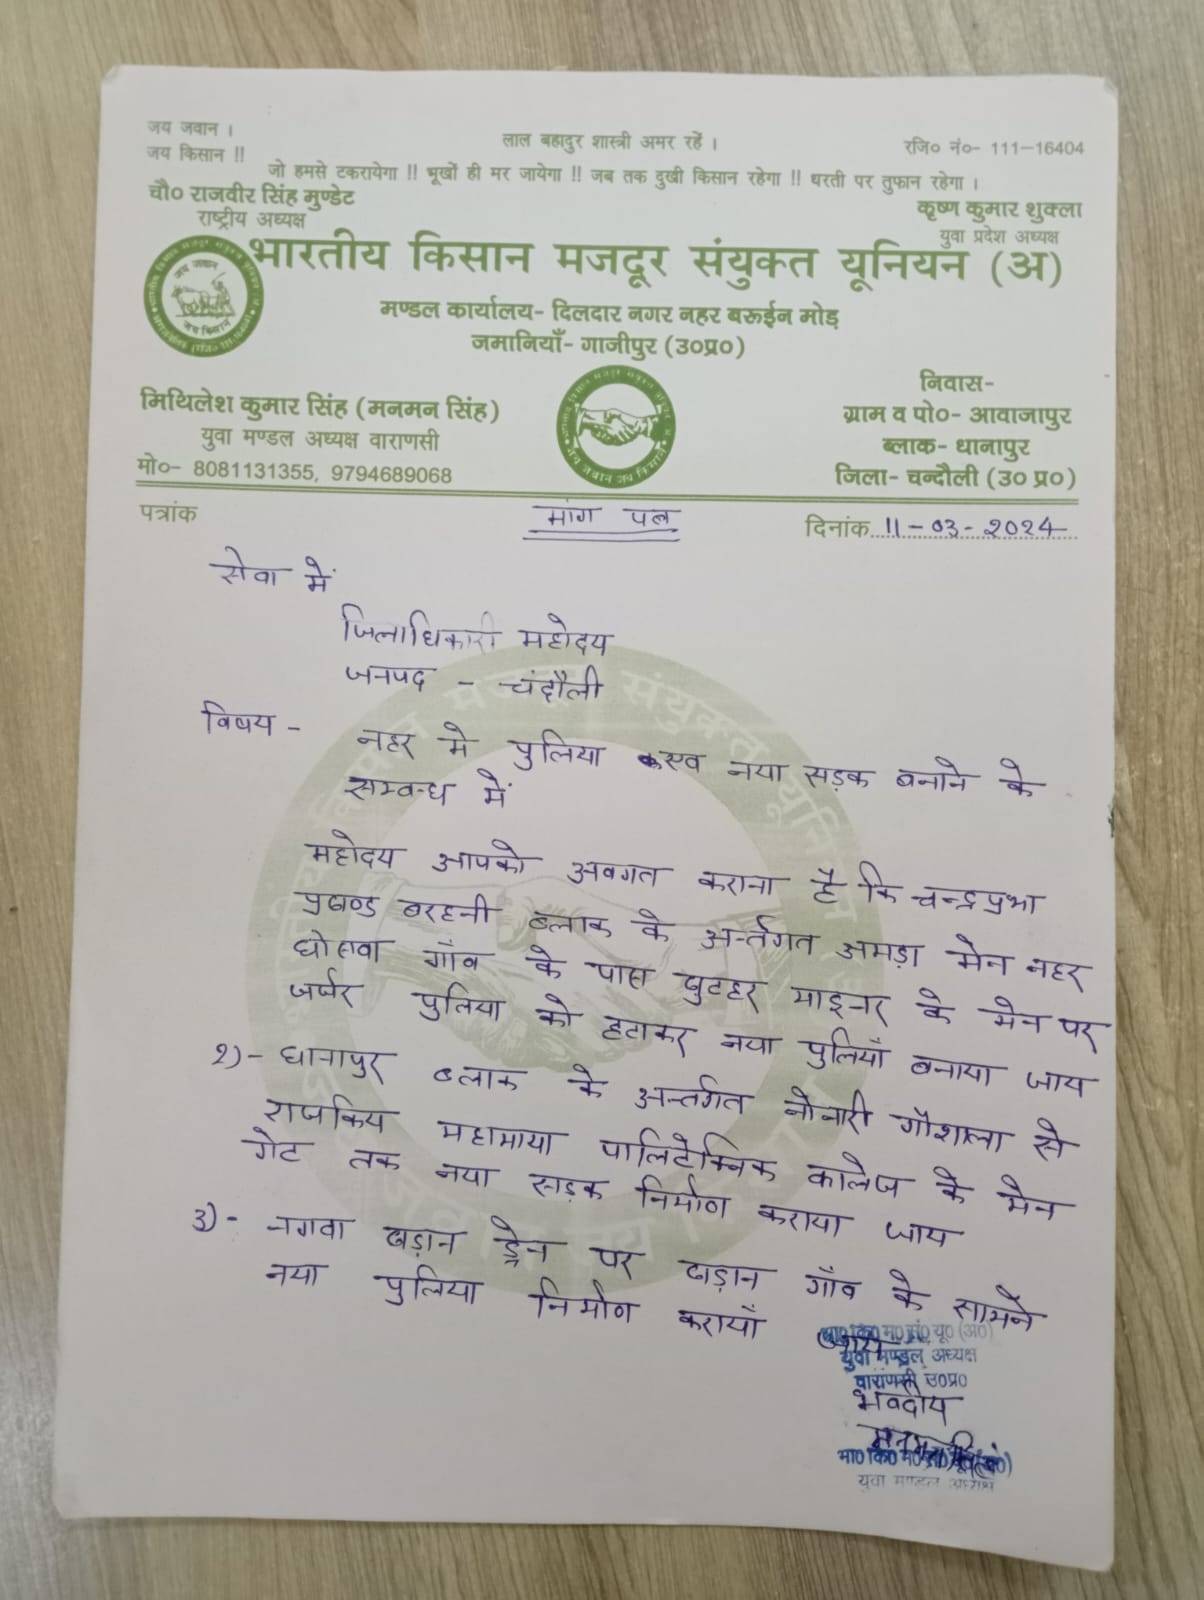 जय जवान ।
जय किसान !!
लाल बहादुर शास्त्री अमर रहें ।
रजि० नं०- 111-16404
जो हमसे टकरायेगा !! भूखों ही मर जायेगा !! जब तक दुखी किसान रहेगा !! धरती पर तुफान रहेगा ।
चौ० राजवीर सिंह मुण्डेट
राष्ट्रीय अध्यक्ष
कृष्ण कुमार शुक्ला
युवा प्रदेश अध्यक्ष
भारतीय किसान मजदूर संयुक्त यूनियन (अ)
मण्डल कार्यालय- दिलदार नगर नहर बरूईन मोड़
जमानियाँ- गाजीपुर (उ०प्र०)
मिथिलेश कुमार सिंह (मनमन सिंह)
युवा मण्डल अध्यक्ष वाराणसी
मो०- 8081131355, 9794689068
निवास-
ग्राम व पो०- आवाजापुर
ब्लाक- धानापुर
जिला- चन्दौली (उ० प्र०)
पत्रांक
मांग पत्र
दिनांक 11-03-2024
सेवा में
जिलाधिकारी महोदय
जनपद - चंदौली
विषय - नहर मे पुलिया एव नया सड़क बनाने के
सम्बन्ध में
महोदय आपको अवगत कराना है कि चन्द्रप्रभा
प्रखण्ड बरहनी ब्लाक के अर्न्तगत अमड़ा मेन नहर
घोसवा गाँव के पास खुटहर माइनर के मेन पर
जर्जर पुलिया को हटाकर नया पुलियाँ बनाया जाय
2)- धानापुर ब्लाक के अर्न्तगत नौनारी गौशाला से
राजकिय महामाया पालिटेक्निक कालेज के मेन
गेट तक नया सड़क निर्माण कराया जाय
3)- नगवा ढड़ान ड्रेन पर ढाड़ान गाँव के सामने
नया पुलिया निर्माण करायाँ जाय
भा० कि० म० सं० यू० (अ०)
युवा मण्डल अध्यक्ष
वाराणसी उ०प्र०
भवदीय
भा० कि० म०
युवा मण्डल अध्यक्ष